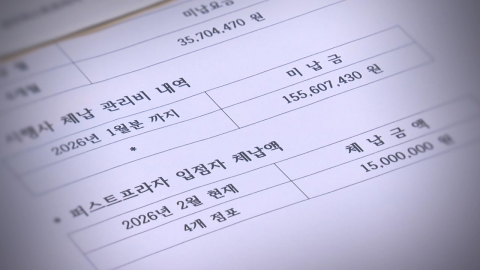 미납요금
35,704,470 원
시행사 체납 관리비 내역
2026년 1월분 까지
미 납 금
155,607,430 원
*
* 피스트프라자 입점자 체납액
2026년 2월 현재
체 납 금 액
4개 점포
15,000,000 원